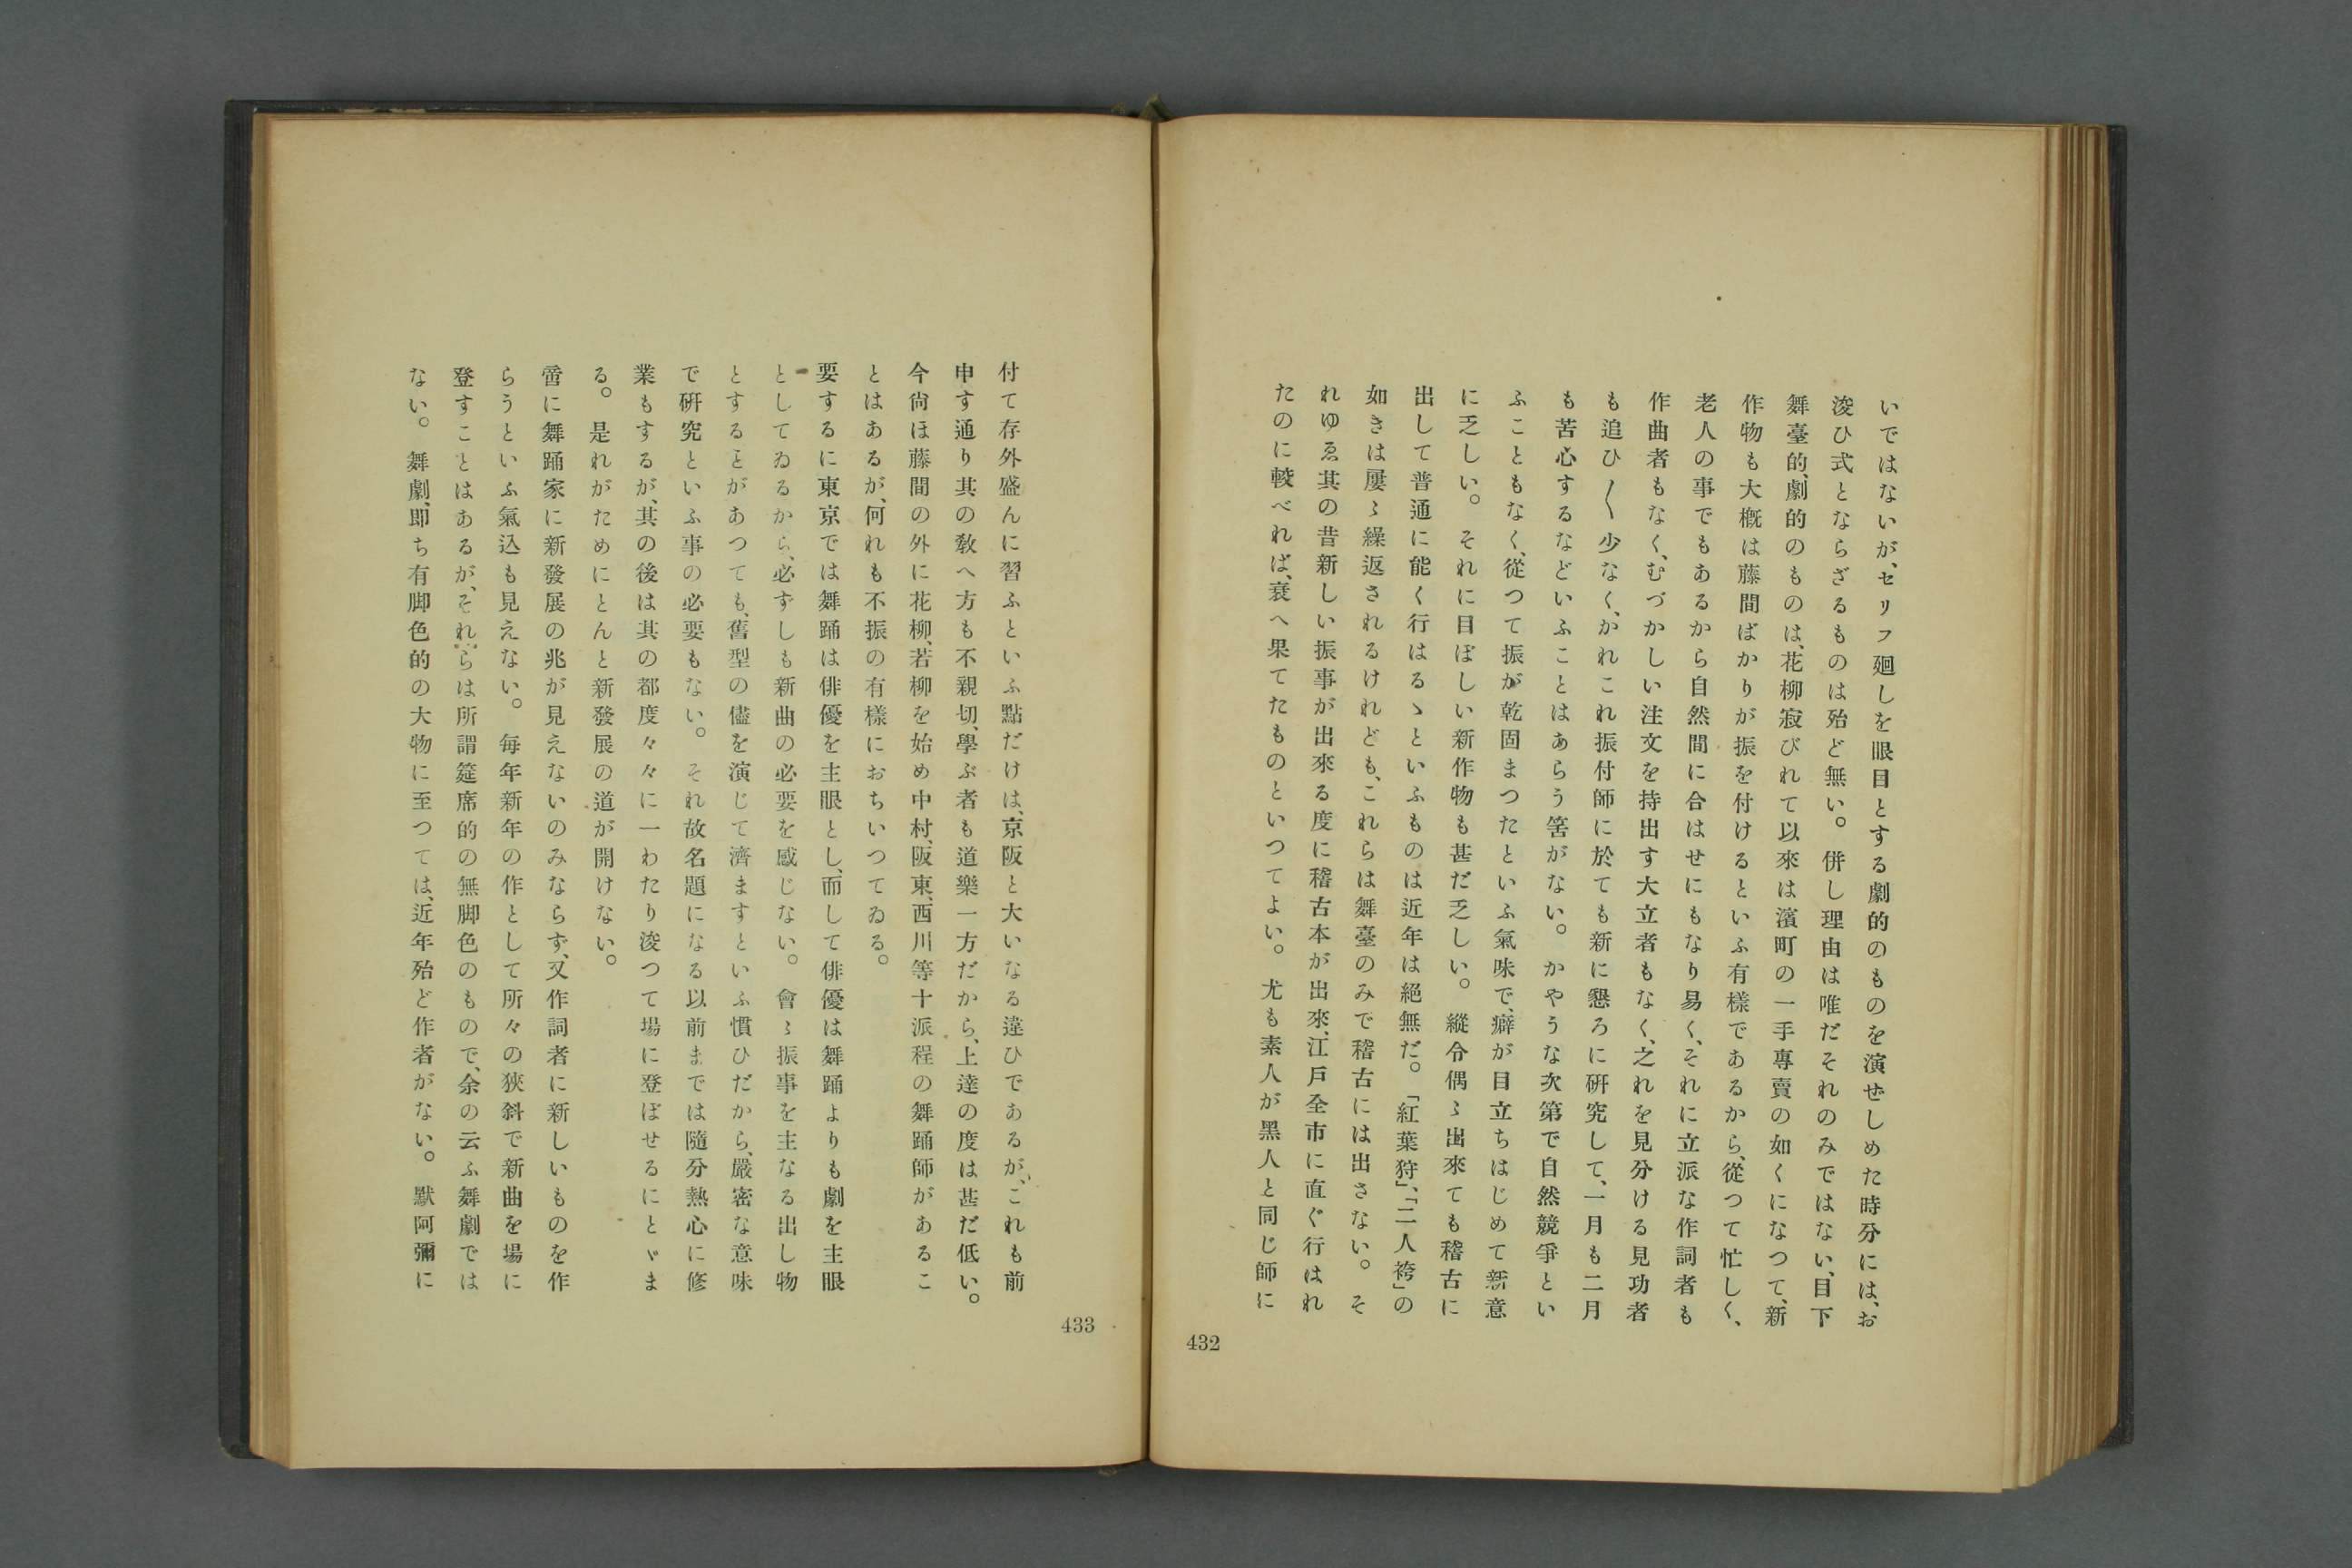 いではないが、セリフ廻しを眼目とする劇的のものを演ぜしめた時分には、お
浚ひ式とならざるものは殆ど無い。併し理由は唯だそれのみではない、目下
舞臺的、劇的のものは、花柳寂びれて以來は濱町の一手專賣の如くになつて、新
作物も大槪は藤間ばかりが振を付けるといふ有樣であるから、從つて忙しく、
老人の事でもあるから自然間に合はせにもなり易く、それに立派な作詞者も
作曲者もなく、むづかしい注文を持出す大立者もなく、之れを見分ける見功者
も追ひ〳〵少なく、かれこれ振付師に於ても新に懇ろに硏究して、一月も二月
も苦心するなどいふことはあらう筈がない。かやうな次第で自然競爭とい
ふこともなく、從つて振が乾固まつたといふ氣味で、癖が目立ちはじめて新意
に乏しい。それに目ぼしい新作物も甚だ乏しい。縱令偶〻出來ても稽古に
出して普通に能く行はるゝといふものは近年は絕無だ。「紅葉狩」、「二人袴」の
如きは屢〻繰返されるけれども、これらは舞臺のみで稽古には出さない。そ
れゆゑ其の昔新しい振事が出來る度に稽古本が出來、江戶全市に直ぐ行はれ
たのに較べれば、衰へ果てたものといつてよい。尤も素人が黑人と同じ師に
432
付て存外盛んに習ふといふ點だけは、京阪と大いなる違ひであるが、これも前
申す通り其の敎へ方も不親切、學ぶ者も道樂一方だから、上達の度は甚だ低い。
今尙ほ藤間の外に花柳、若柳を始め中村、阪東、西川等十派程の舞踊師があるこ
とはあるが、何れも不振の有樣におちいつてゐる。
要するに東京では舞踊は俳優を主眼とし、而して俳優は舞踊よりも劇を主眼
としてゐるから、必ずしも新曲の必要を感じない。會〻振事を主なる出し物
とするとがあつても、舊型の儘を演じて濟ますといふ慣ひだから、嚴密な意味
で硏究といふ事の必要もない。それ故名題になる以前までは隨分熱心に修
業もするが、其の後は其の都度々々に一わたり浚つて場に登ぼせるにとゞま
る。是れがためにとんと新發展の道が開けない。
啻に舞踊家に新發展の兆が見えないのみならず、又作詞者に新しいものを作
らうといふ氣込も見えない。每年新年の作として所々の狹斜で新曲を場に
登すことはあるが、それらは所謂筵席的の無脚色のもので、余の云ふ舞劇では
ない。舞劇、卽ち有脚色的の大物に至つては、近年殆ど作者がない。默阿彌に
433